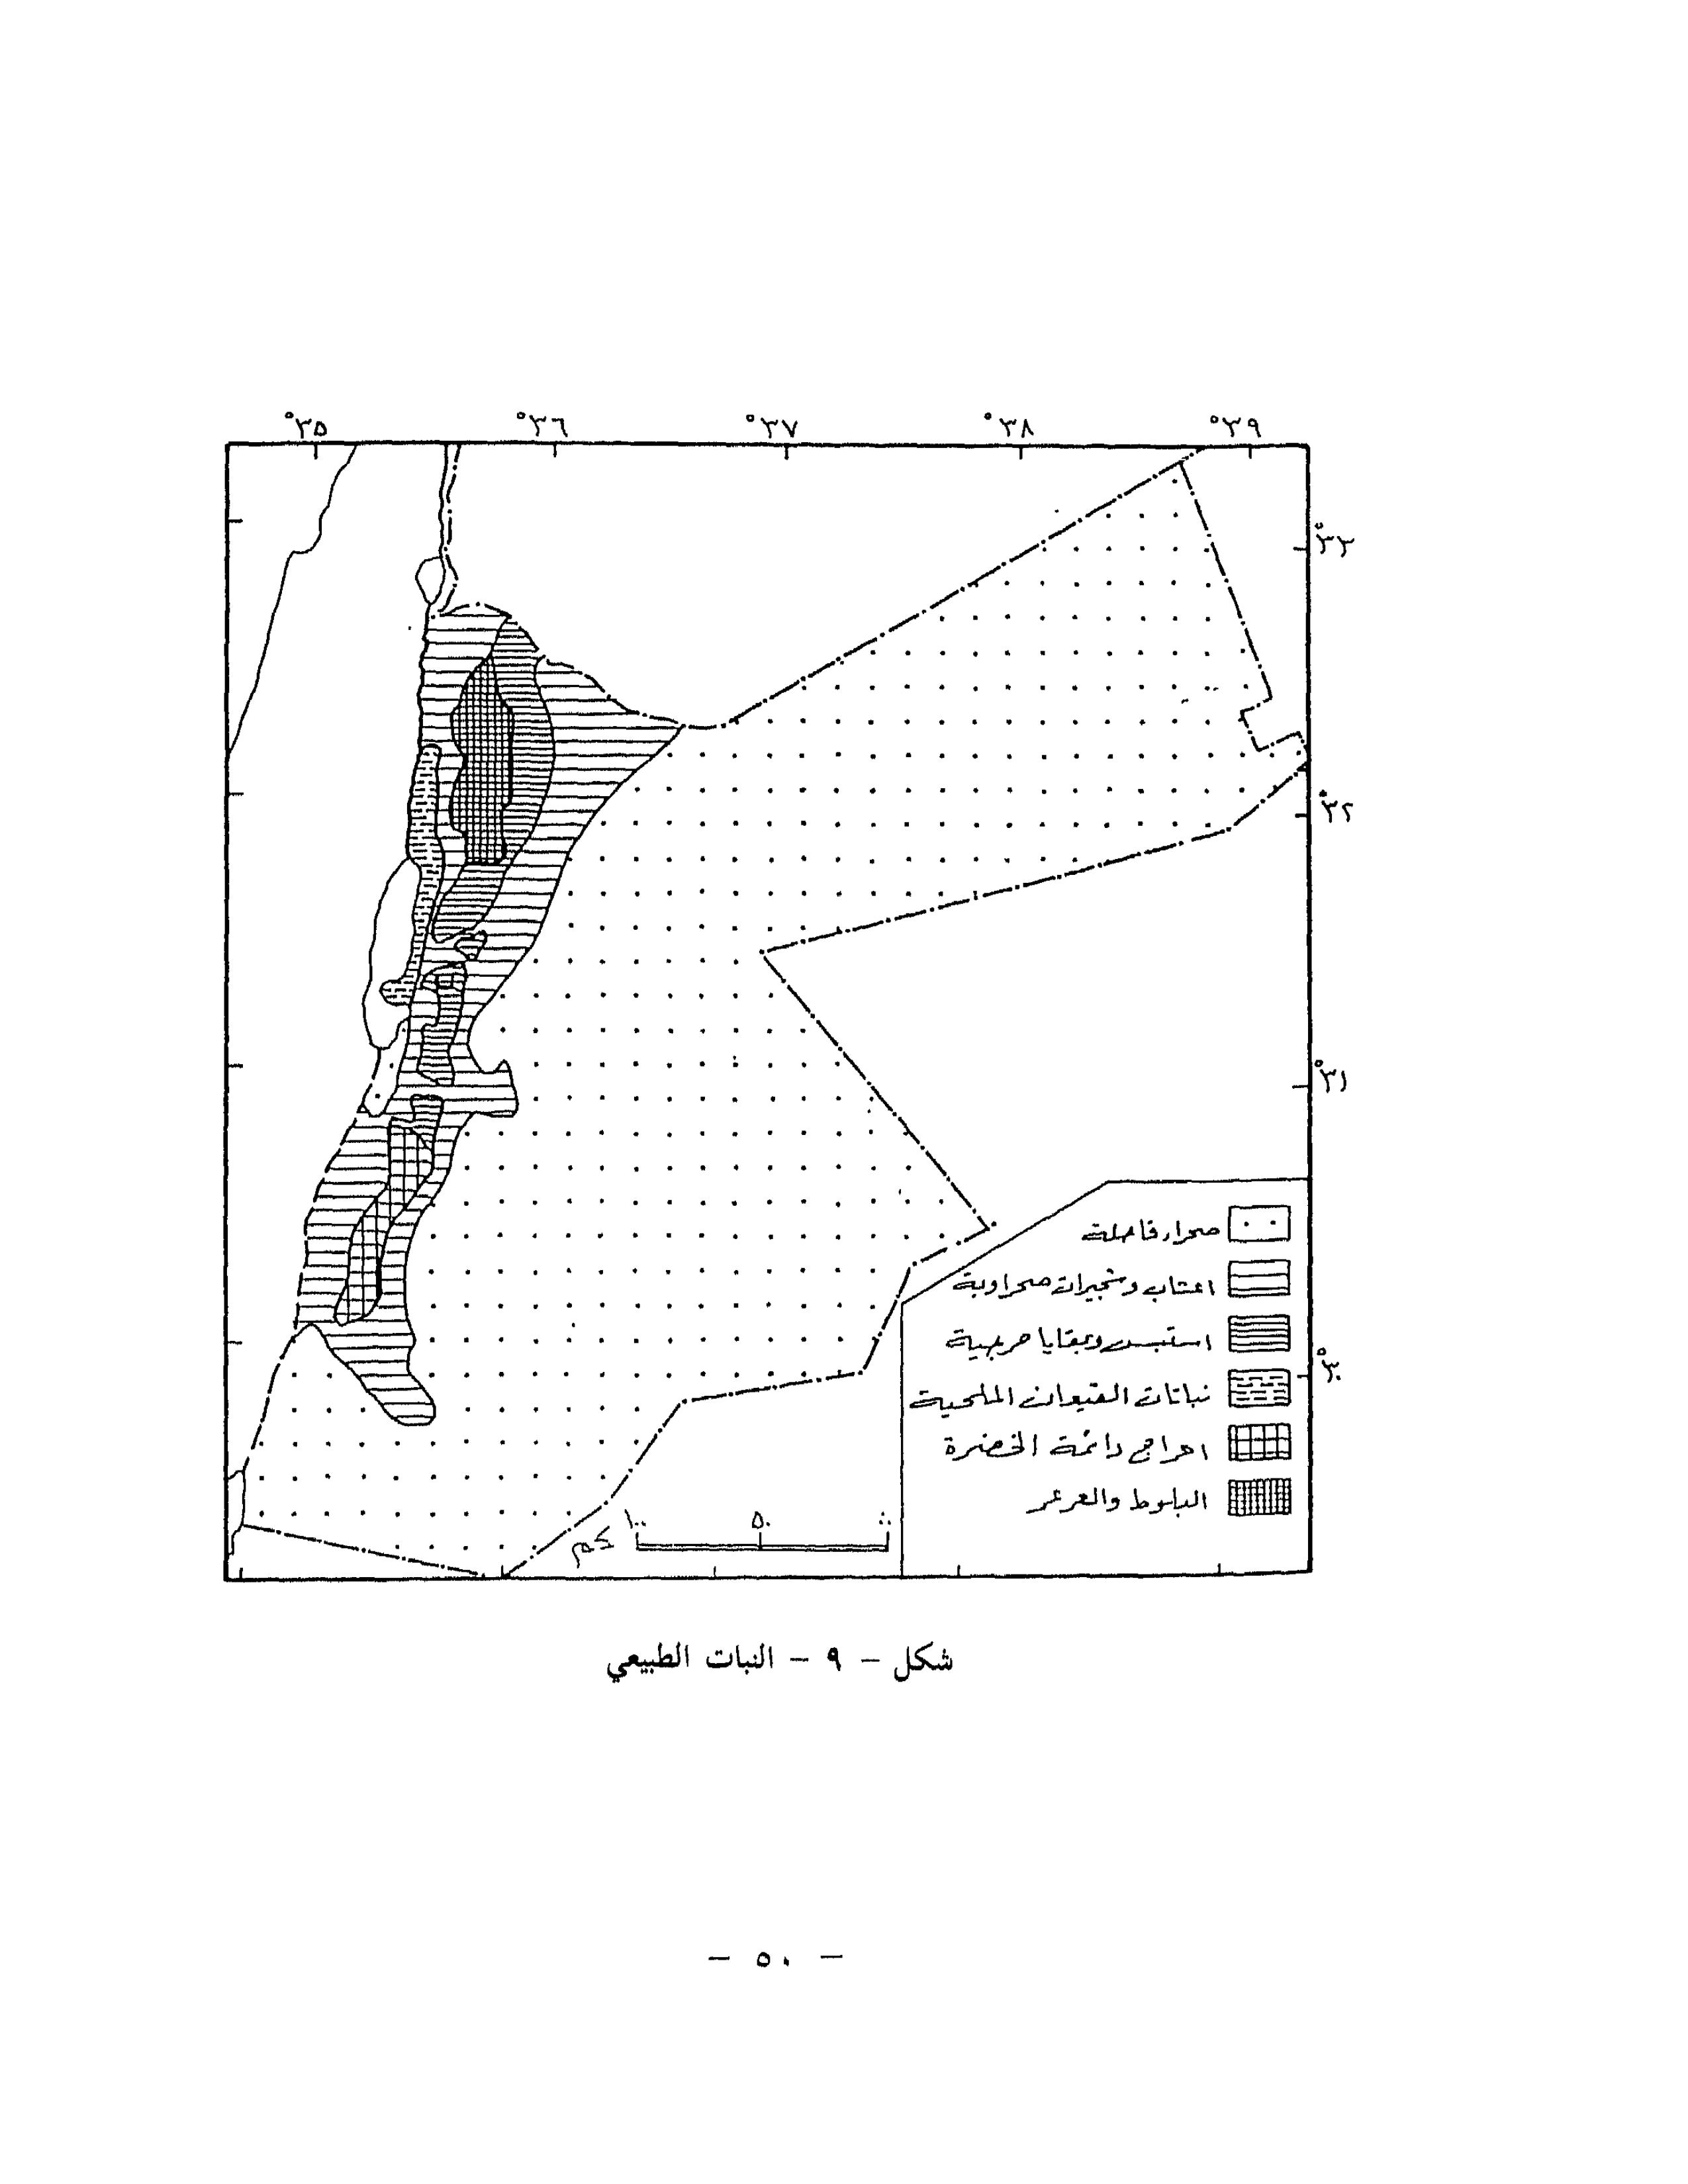 °٣٥ °٣٦ °٣٧ °٣٨ °٣٩
°٣٣
°٣٢
°٣١
°٣٠
صحراء قاحلة
اعشاب وشجيرات صحراوية
استبس وبقايا حرجية
نباتات القيعان الملحية
احراج دائمة الخضرة
البلوط والعرعر
١٠٠ ٥٠ ٠
كم
شكل - ٩ - النبات الطبيعي
- ٥٠ -